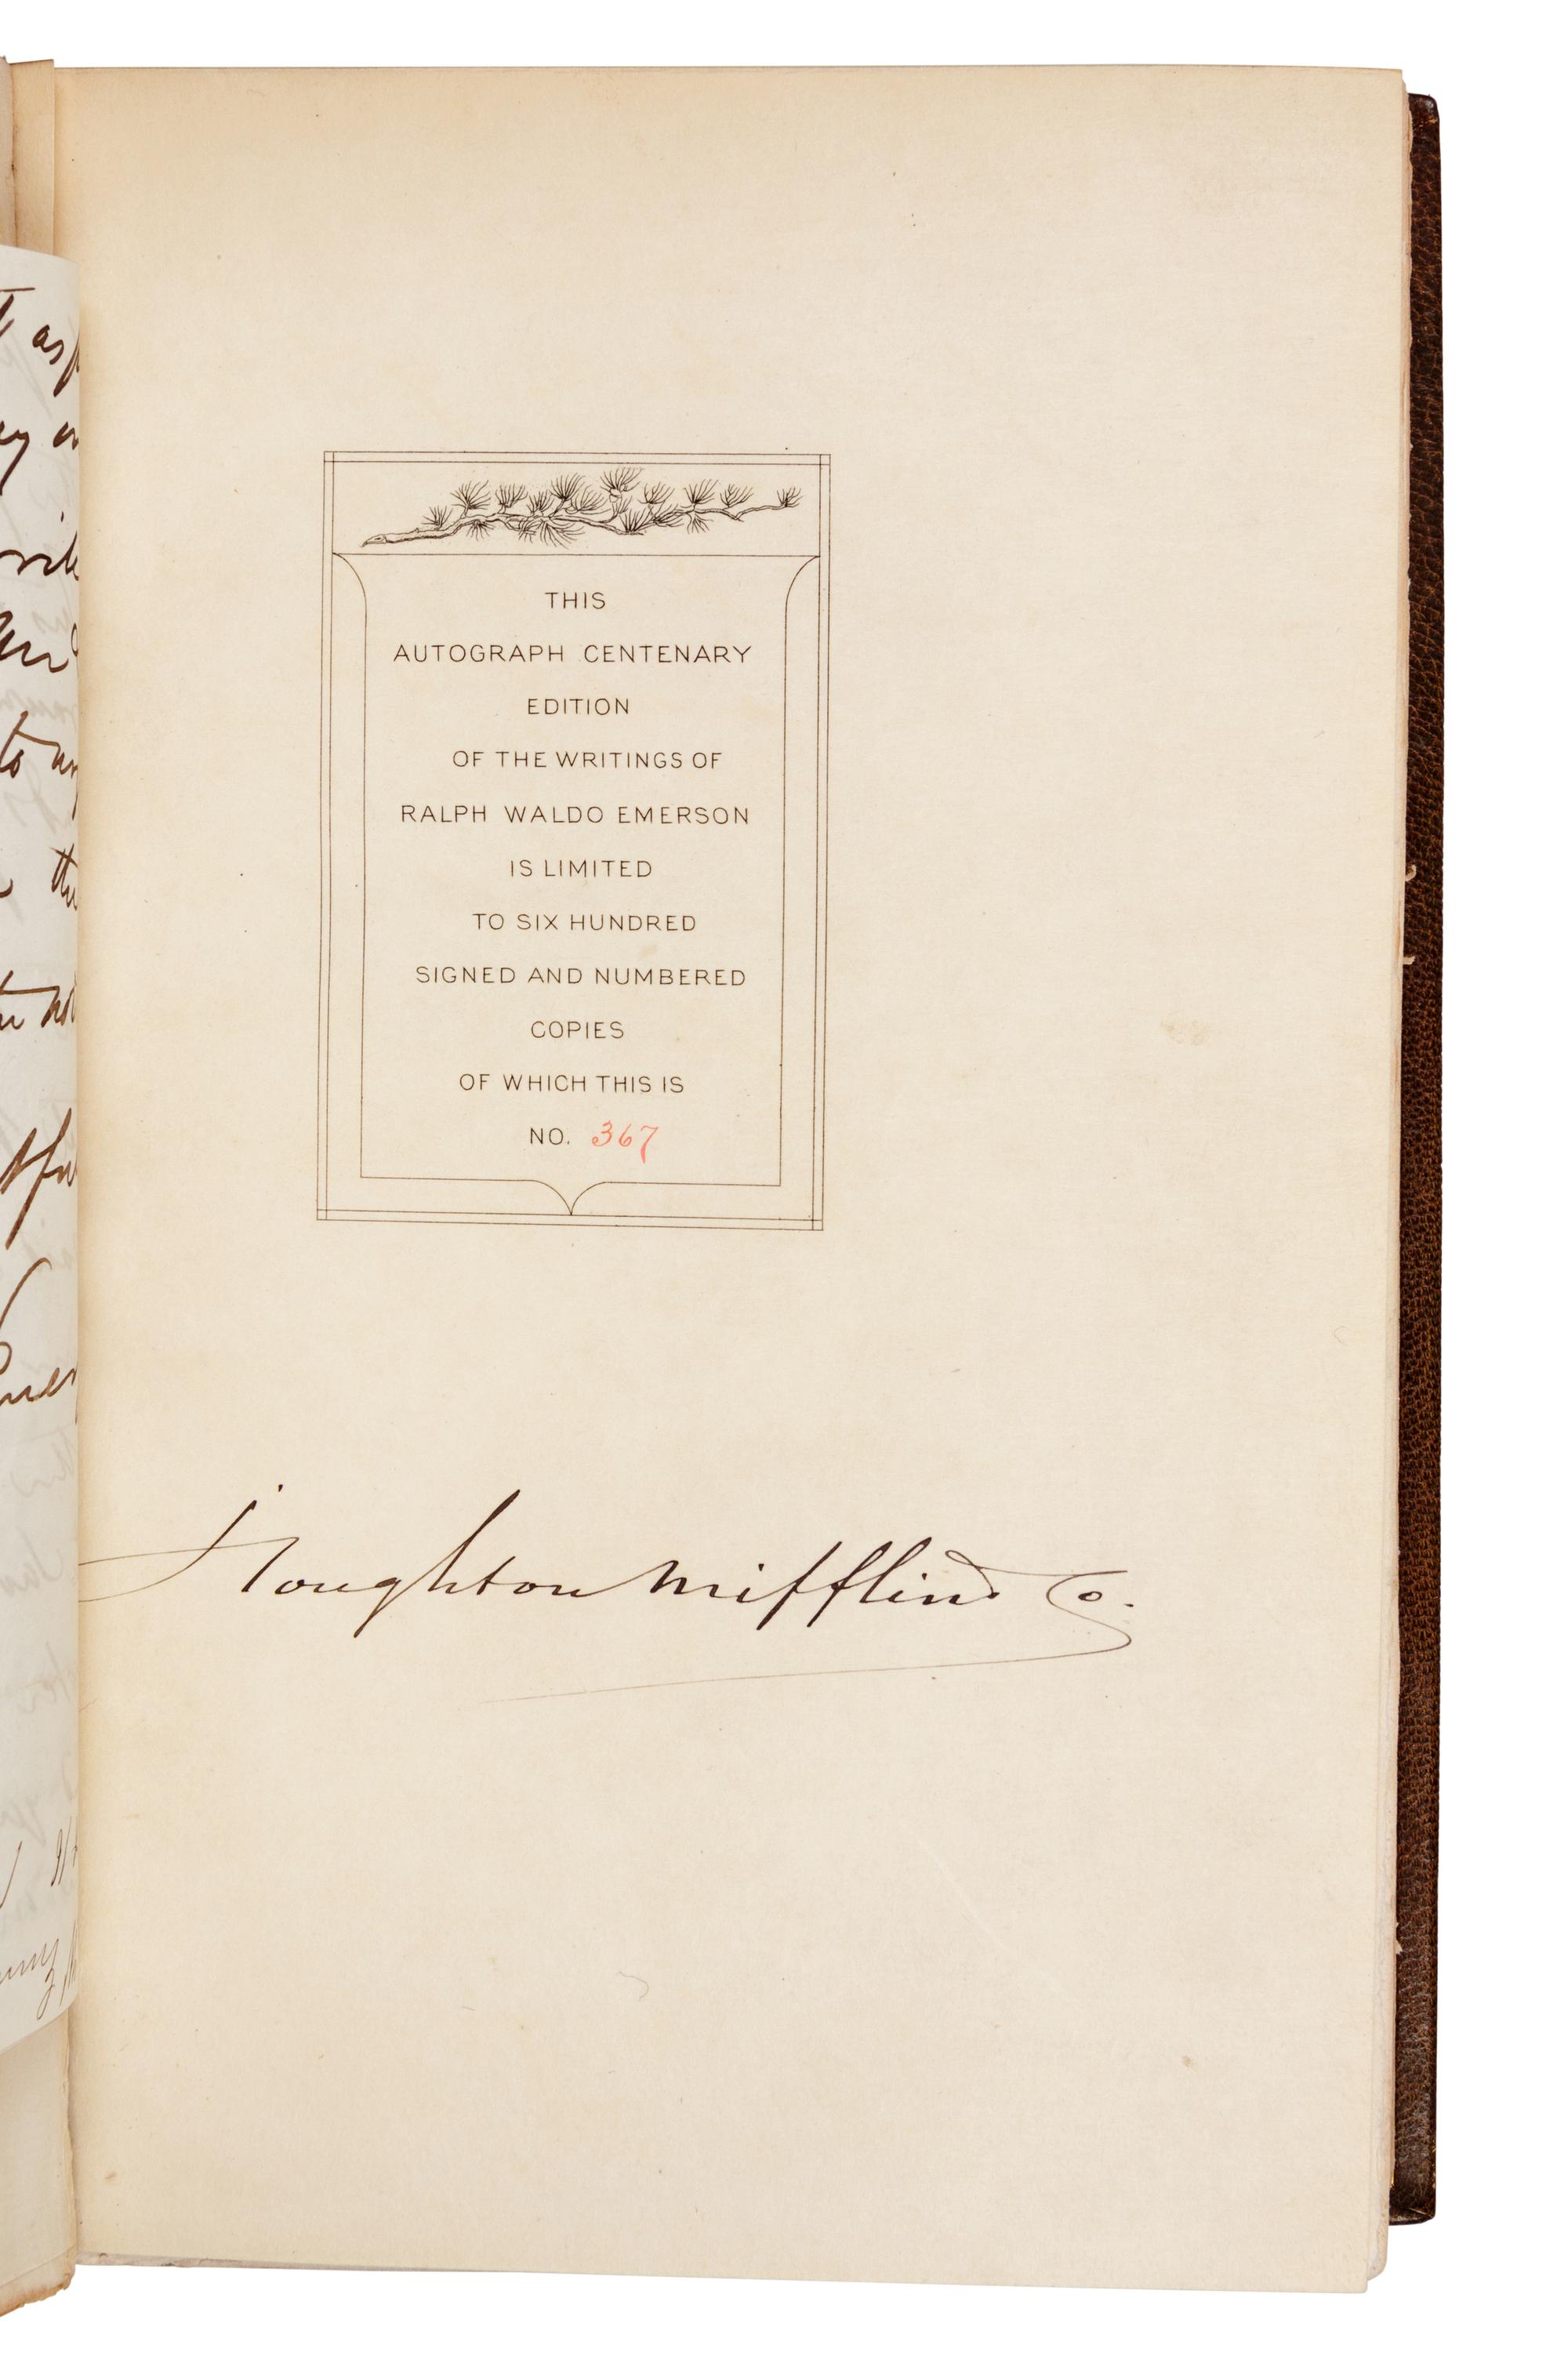 THIS
AUTOGRAPH CENTENARY
EDITION
OF THE WRITINGS OF
RALPH WALDO EMERSON
IS LIMITED
TO SIX HUNDRED
SIGNED AND NUMBERED
COPIES
OF WHICH THIS IS
NO. 367
Houghton Mifflin & Co.